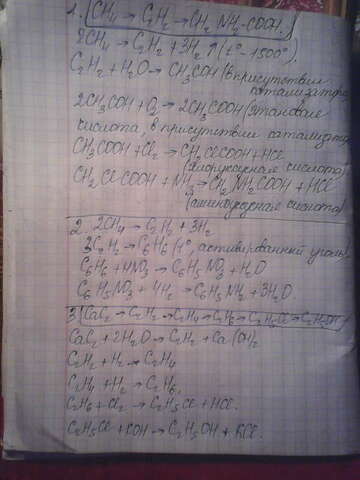 1. (CH₄ → C₂H₂ → CH₂NH₂-COOH.)
2CH₄ → C₂H₂ + 3H₂↑ (t° - 1500°).
C₂H₂ + H₂O → CH₃COH (в присутствии
катализатора)
2CH₃COH + O₂ → 2CH₃COOH (этановая
кислота, в присутствии катализатора
CH₃COOH + Cl₂ → CH₂ClCOOH + HCl
(хлоруксусная кислота)
CH₂ClCOOH + NH₃ → CH₂NH₂COOH + HCl
(аминоуксусная кислота)
2. 2CH₄ → C₂H₂ + 3H₂
3C₂H₂ → C₆H₆ (t°, активированный уголь)
C₆H₆ + HNO₃ → C₆H₅NO₃ + H₂O
C₆H₅NO₃ + 4H₂ → C₆H₅NH₂ + 3H₂O.
3. (CaC₂ → C₂H₂ → C₂H₄ → C₂H₆ → C₂H₅Cl → C₂H₅OH)
CaC₂ + 2H₂O → C₂H₂ + Ca(OH)₂
C₂H₂ + H₂ → C₂H₄
C₂H₄ + H₂ → C₂H₆
C₂H₆ + Cl₂ → C₂H₅Cl + HCl.
C₂H₅Cl + KOH → C₂H₅OH + KCl.